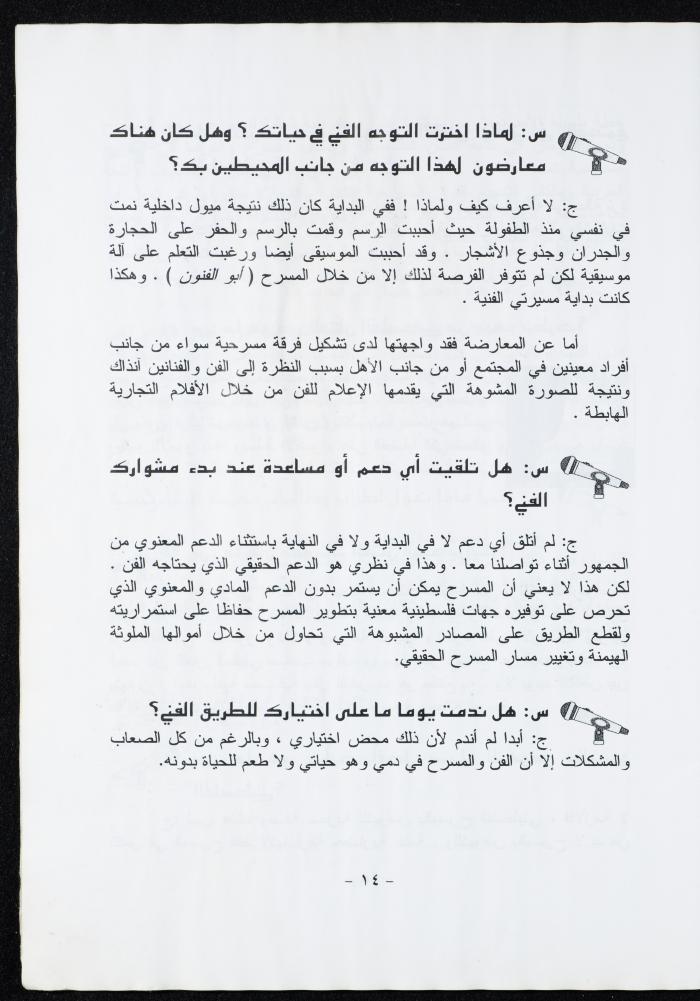 س: لماذا اخترت التوجه الفني في حياتك ؟ وهل كان هناك
معارضون لهذا التوجه من جانب المحيطين بك؟
ج: لا أعرف كيف ولماذا ! ففي البداية كان ذلك نتيجة ميول داخلية نمت
في نفسي منذ الطفولة حيث أحببت الرسم وقمت بالرسم والحفر على الحجارة
والجدران وجذوع الأشجار . وقد أحببت الموسيقى أيضا ورغبت التعلم على آلة
موسيقية لكن لم تتوفر الفرصة لذلك إلا من خلال المسرح ( أبو الفنون ) . وهكذا
كانت بداية مسيرتي الفنية .
أما عن المعارضة فقد واجهتها لدى تشكيل فرقة مسرحية سواء من جانب
أفراد معينين في المجتمع أو من جانب الأهل بسبب النظرة إلى الفن والفنانين آنذاك
ونتيجة للصورة المشوهة التي يقدمها الإعلام للفن من خلال الأفلام التجارية
الهابطة .
س: هل تلقيت أي دعم أو مساعدة عند بدء مشوارك
الفني؟
ج: لم أتلق أي دعم لا في البداية ولا في النهاية باستثناء الدعم المعنوي من
الجمهور أثناء تواصلنا معا . وهذا في نظري هو الدعم الحقيقي الذي يحتاجه الفن .
لكن هذا لا يعني أن المسرح يمكن أن يستمر بدون الدعم المادي والمعنوي الذي
تحرص على توفيره جهات فلسطينية معنية بتطوير المسرح حفاظا على استمراريته
ولقطع الطريق على المصادر المشبوهة التي تحاول من خلال أموالها الملوثة
الهيمنة وتغيير مسار المسرح الحقيقي.
س: هل ندمت يوما ما على اختيارك للطريق الفني؟
ج: أبدا لم أندم لأن ذلك محض اختياري ، وبالرغم من كل الصعاب
والمشكلات إلا أن الفن والمسرح في دمي وهو حياتي ولا طعم للحياة بدونه.
- ١٤ -